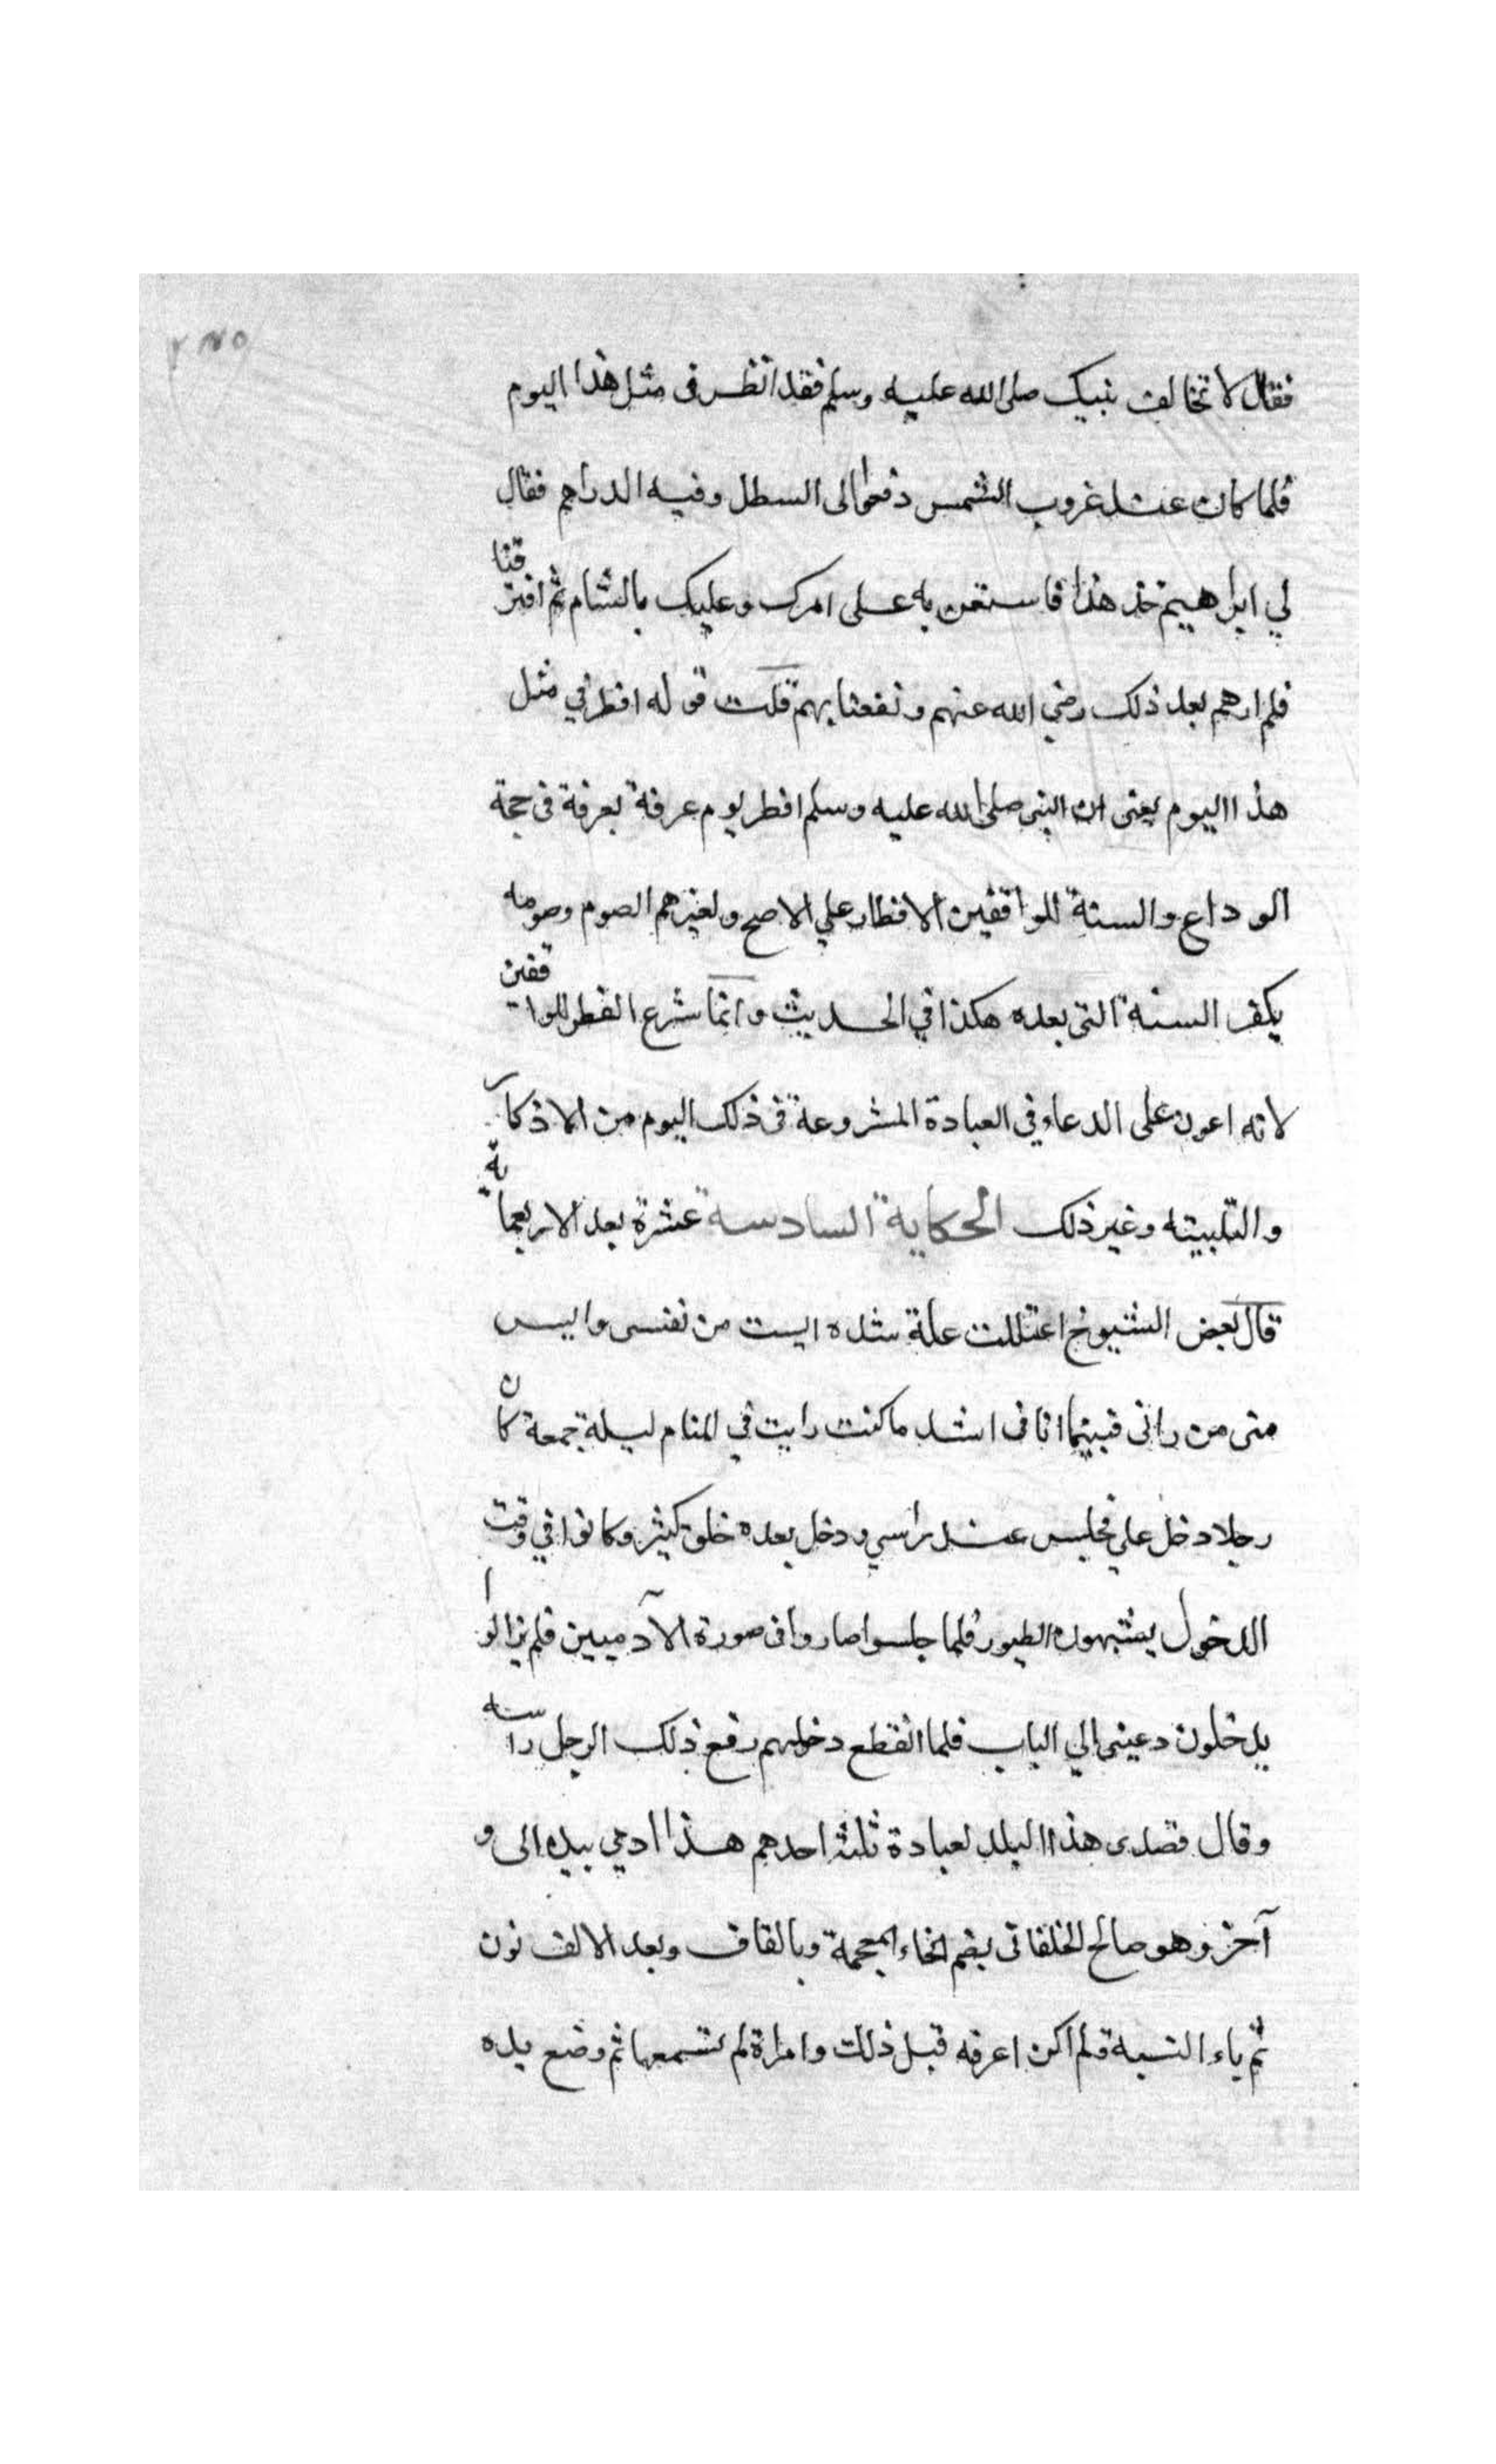 فقال لا تخالف نبيك صلى الله عليه وسلم فقد انظر فى مثل هذا اليوم
فلما كان عند غروب الشمس دفعوا الى السطل وفيه الدراهم فقال
لي ابراهيم خذ هذا فاستعن به على امرك وعليك بالشام ثم افترقنا
فلم ارهم بعد ذلك رضي الله عنهم ونفعنا بهم قلت قوله افطر في مثل
هذا اليوم يعنى ان النبى صلى الله عليه وسلم افطر يوم عرفة بعرفة فى حجة
الوداع والسنة للواقفين الافطار علي الاصح ولغيرهم الصوم وصومه
يكفر السنة التى بعده هكذا في الحديث وانما شرع الفطر للواقفين
لانه اعون على الدعاء في العبادة المشروعة فى ذلك اليوم من الاذكار
والتلبيته وغير ذلك الحكاية السادسة عشرة بعد الاربعماية
قال بعض الشيوخ اعتللت علة شده ايست من نفسى وايس
منى من رانى فبينما انا فى اشد ما كنت رايت في المنام ليلة جمعة كان
رجلا دخل علي فجلس عند راسي ودخل بعده خلق كثير وكانوا في وقت
الدخول يشبهون الطيور فلما جلسوا صاروا فى صورة الآدميين فلم يزالوا
يدخلون دعينى الي الباب فلما انقطع دخولهم رفع ذلك الرجل راسه
وقال قصدى هذا البلد لعيادة ثلثة احدهم هذا اومي بيده الى و
آخر وهو صالح الخلقانى بضم الخاء المعجمة وبالقاف وبعد الالف نون
ثم ياء النسبة ولم اكن اعرفه قبل ذلك وامراة لم تسمعها ثم وضع يده